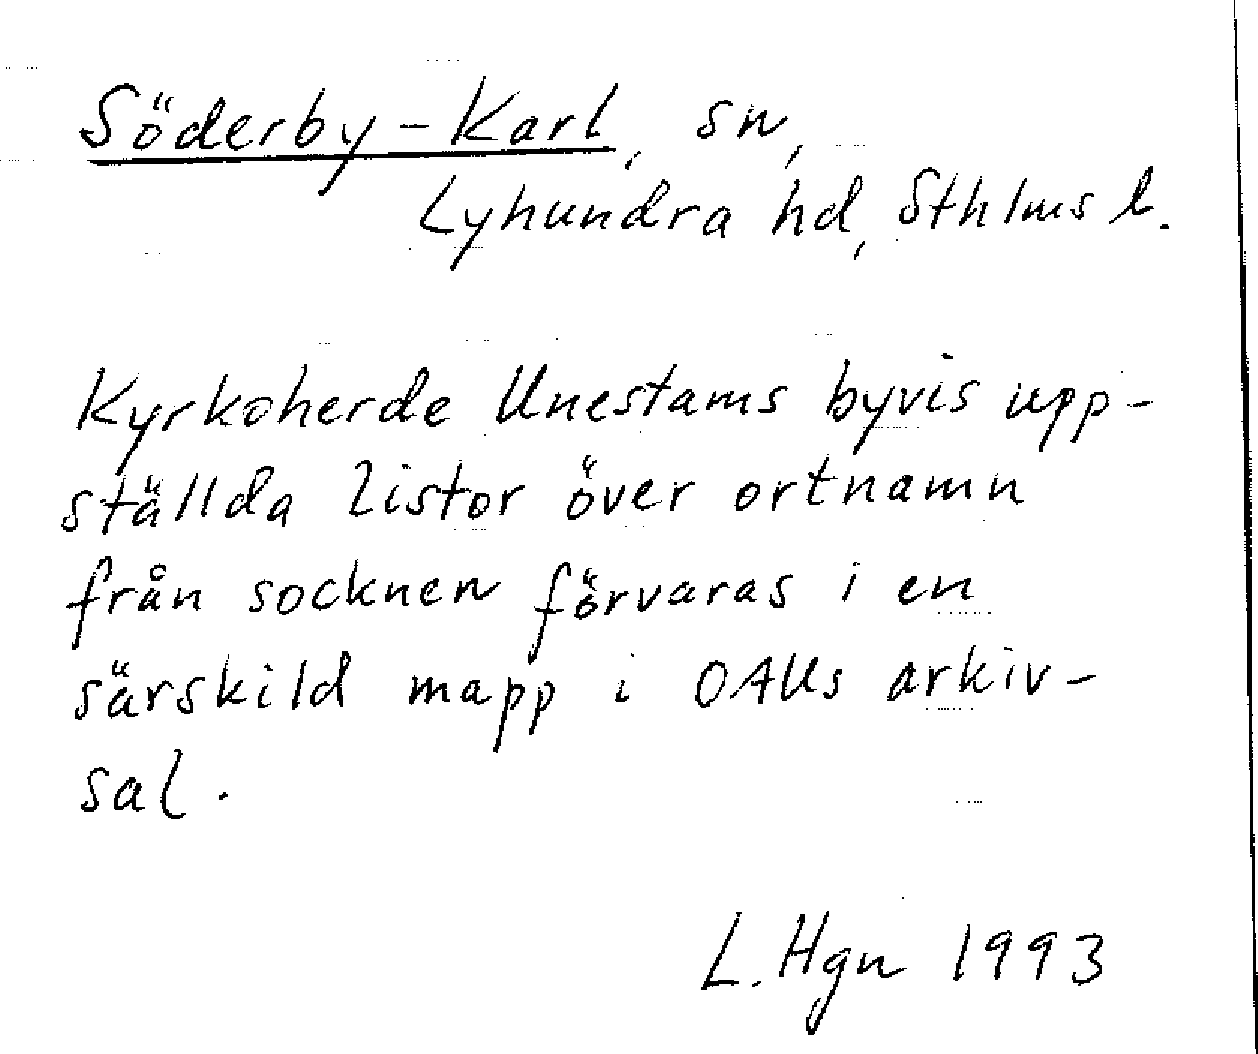 Söderby-Karl, sn,
Lyhundra hd, Sthlms l.
Kyrkoherde Unestams byvis upp-
ställda listor över ortnamn
från socknen förvaras i en
särskild mapp i OAUs arkiv-
sal.
L. Hgn 1993